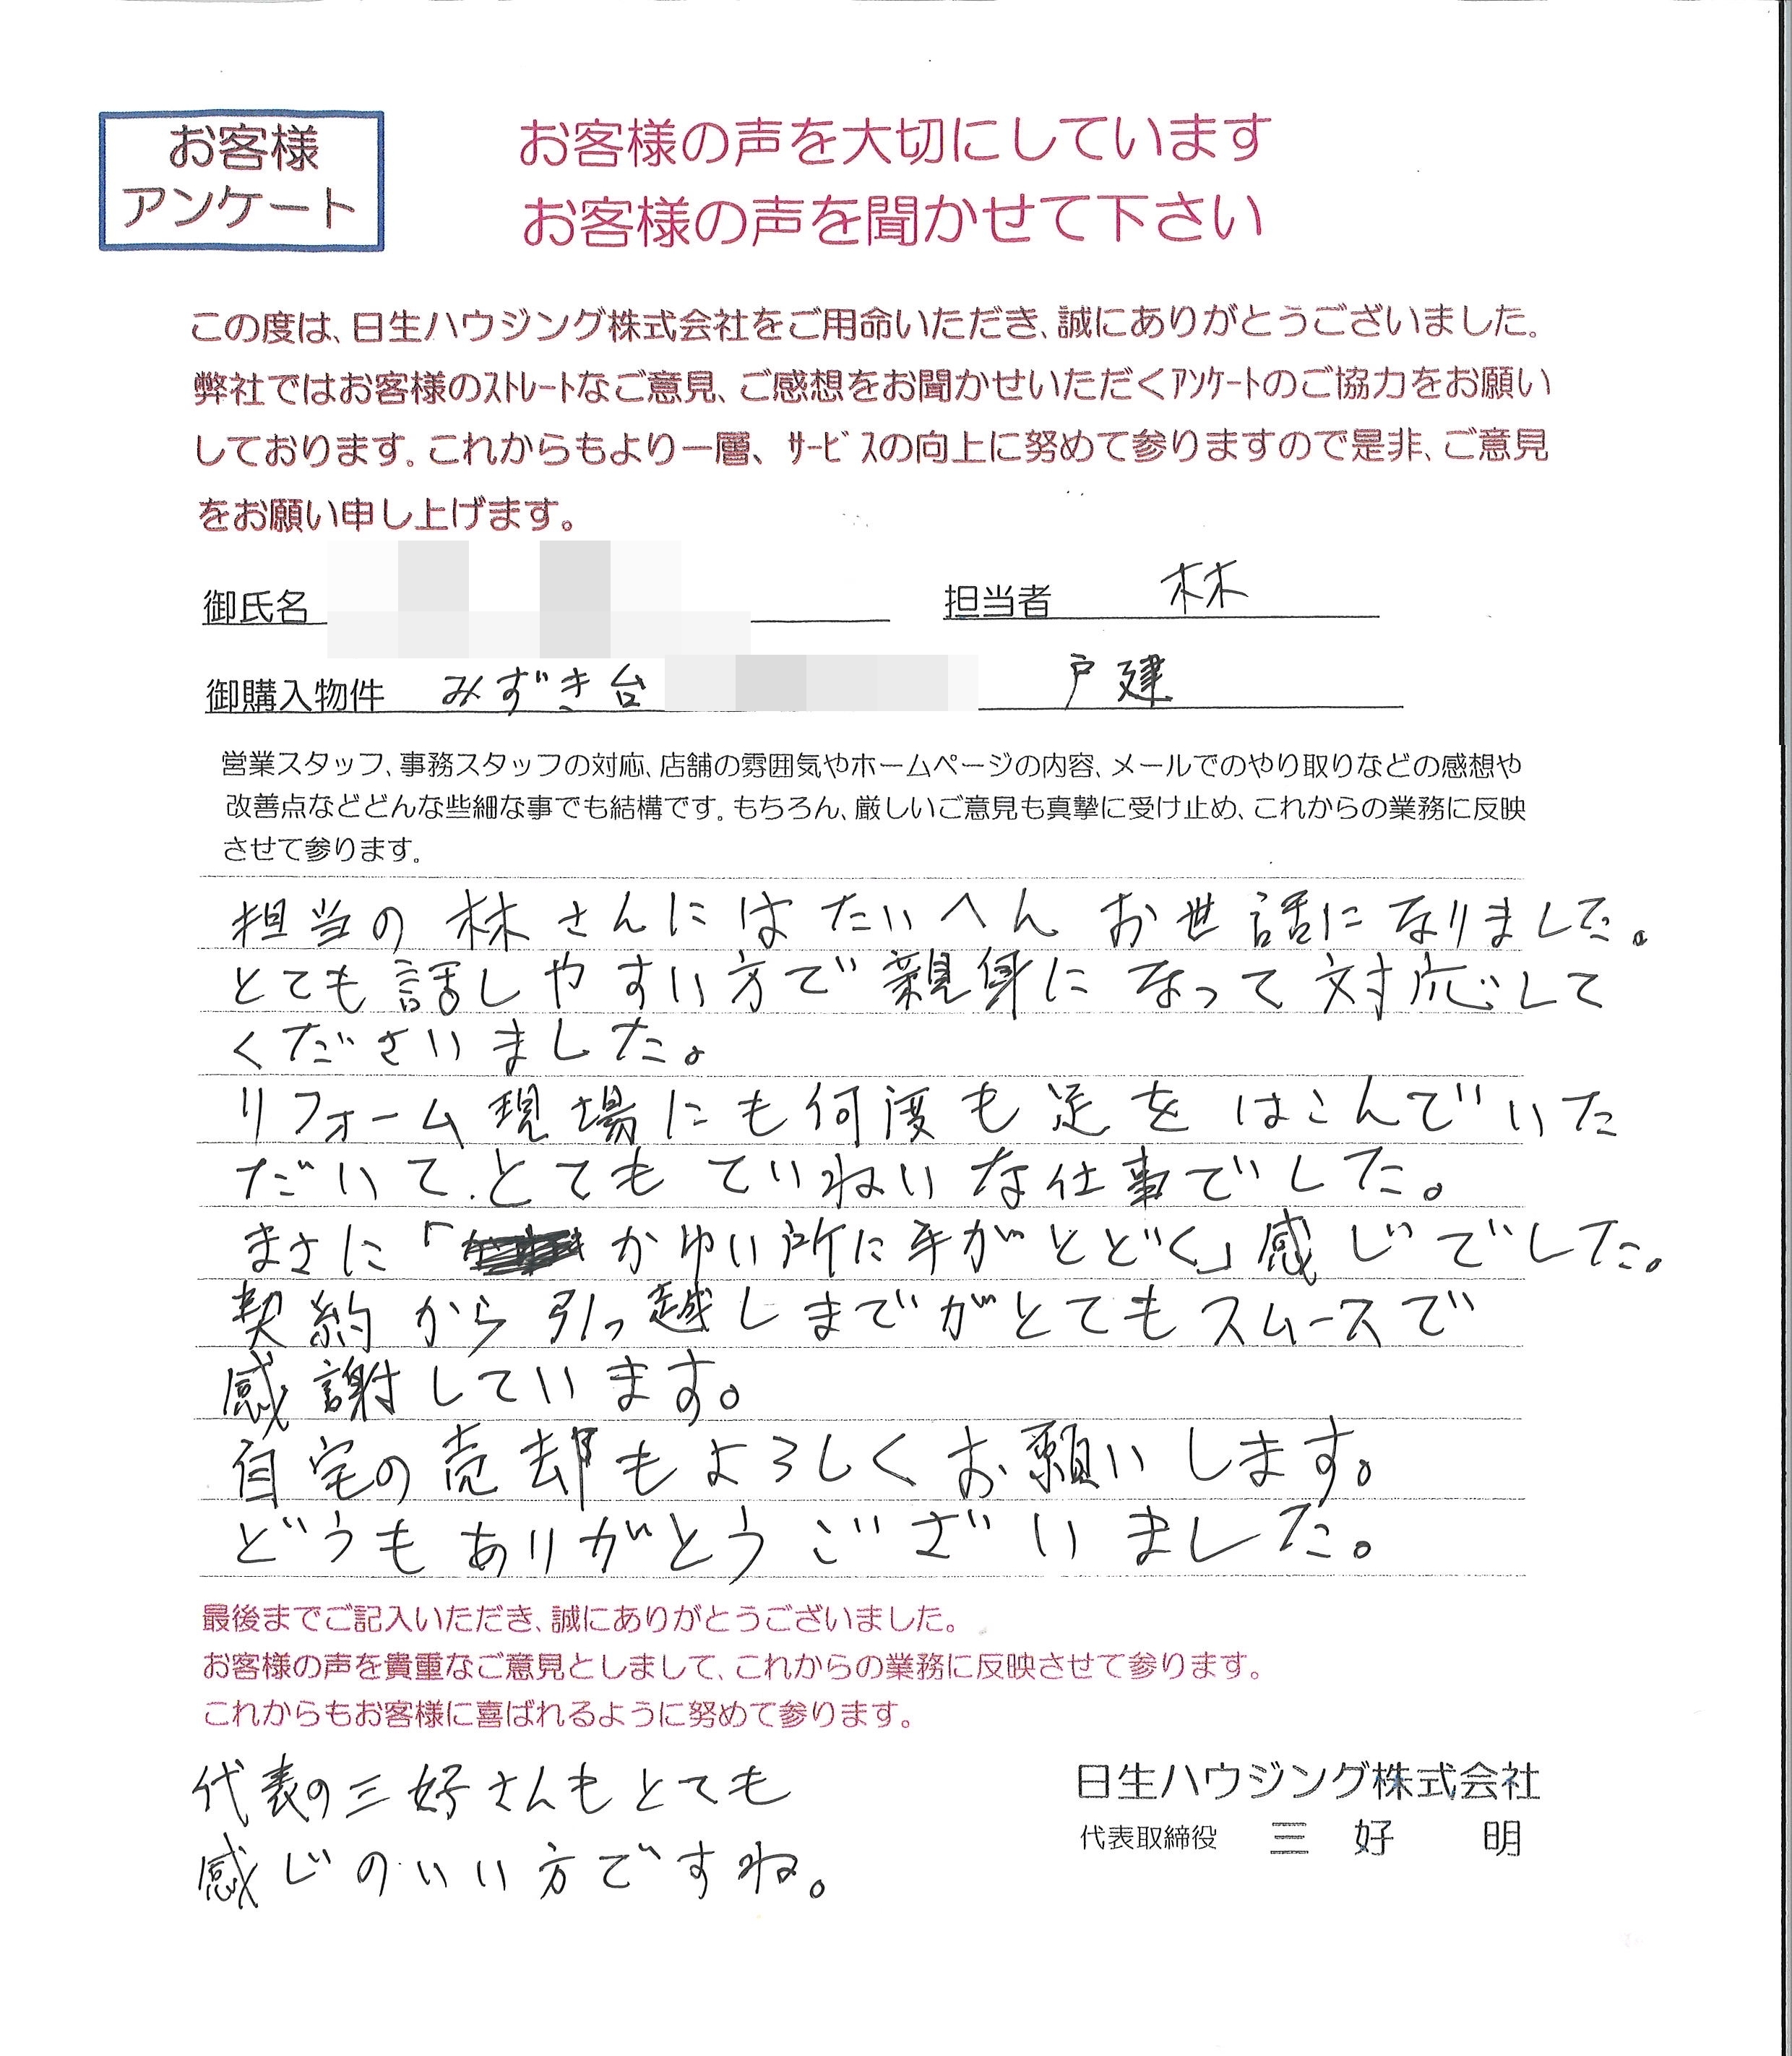 お客様
アンケート
お客様の声を大切にしています
お客様の声を聞かせて下さい
この度は、日生ハウジング株式会社をご用命いただき、誠にありがとうございました。
弊社ではお客様のｽﾄﾚｰﾄなご意見、ご感想をお聞かせいただくｱﾝｹｰﾄのご協力をお願い
しております。これからもより一層、ｻｰﾋﾞｽの向上に努めて参りますので是非、ご意見
をお願い申し上げます。
御氏名 担当者 林
御購入物件 みずき台 戸建
営業スタッフ、事務スタッフの対応、店舗の雰囲気やホームページの内容、メールでのやり取りなどの感想や
改善点などどんな些細な事でも結構です。もちろん、厳しいご意見も真摯に受け止め、これからの業務に反映
させて参ります。
担当の林さんにはたいへんお世話になりました。
とても話しやすい方で親身になって対応して
くださいました。
リフォーム現場にも何度も足をはこんでいた
だいて、とてもていねいな仕事でした。
まさに「かゆい所に手がとどく」感じでした。
契約から引っ越しまでがとてもスムースで
感謝しています。
自宅の売却もよろしくお願いします。
どうもありがとうございました。
最後までご記入いただき、誠にありがとうございました。
お客様の声を貴重なご意見としまして、これからの業務に反映させて参ります。
これからもお客様に喜ばれるように努めて参ります。
代表の三好さんもとても
感じのいい方ですね。
日生ハウジング株式会社
代表取締役 三好 明